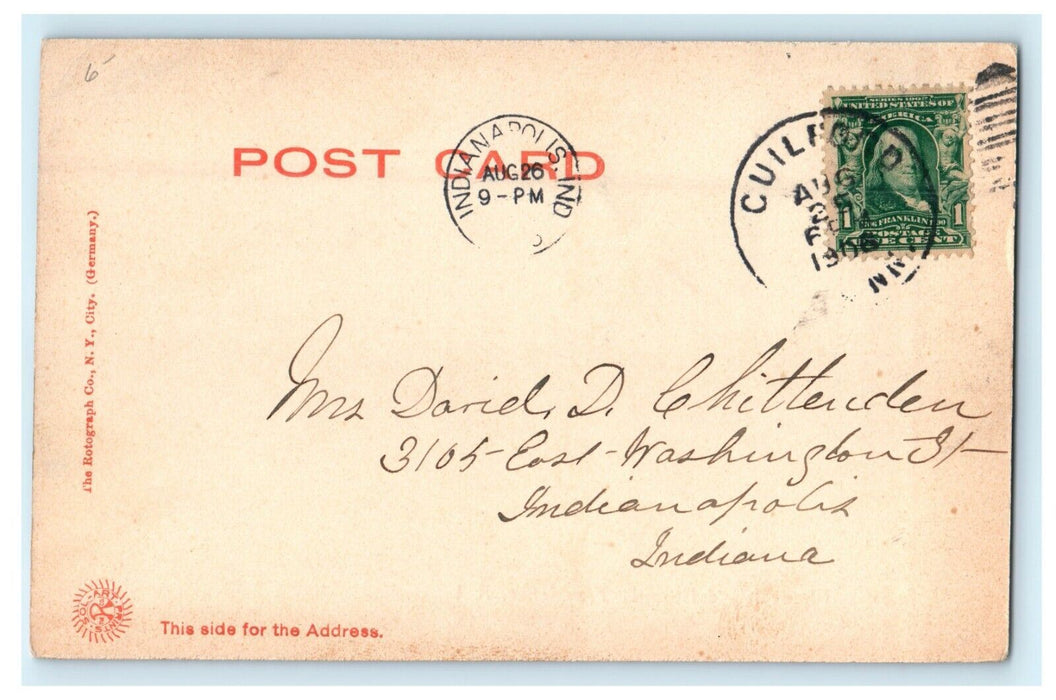 6
POST CARD
INDIANAPOLIS. IND
AUG 26
9-PM
GUILFORD
AUG
1906
SERIES 1902
UNITED STATES OF
AMERICA
1 FRANKLIN 1
POSTAGE
ONE CENT
The Rotograph Co., N. Y., City. (Germany.)
Mrs David. D. Chittenden
3105-East-Washington St-
Indianapolis
Indiana
SOL-ART PRINTS
This side for the Address.